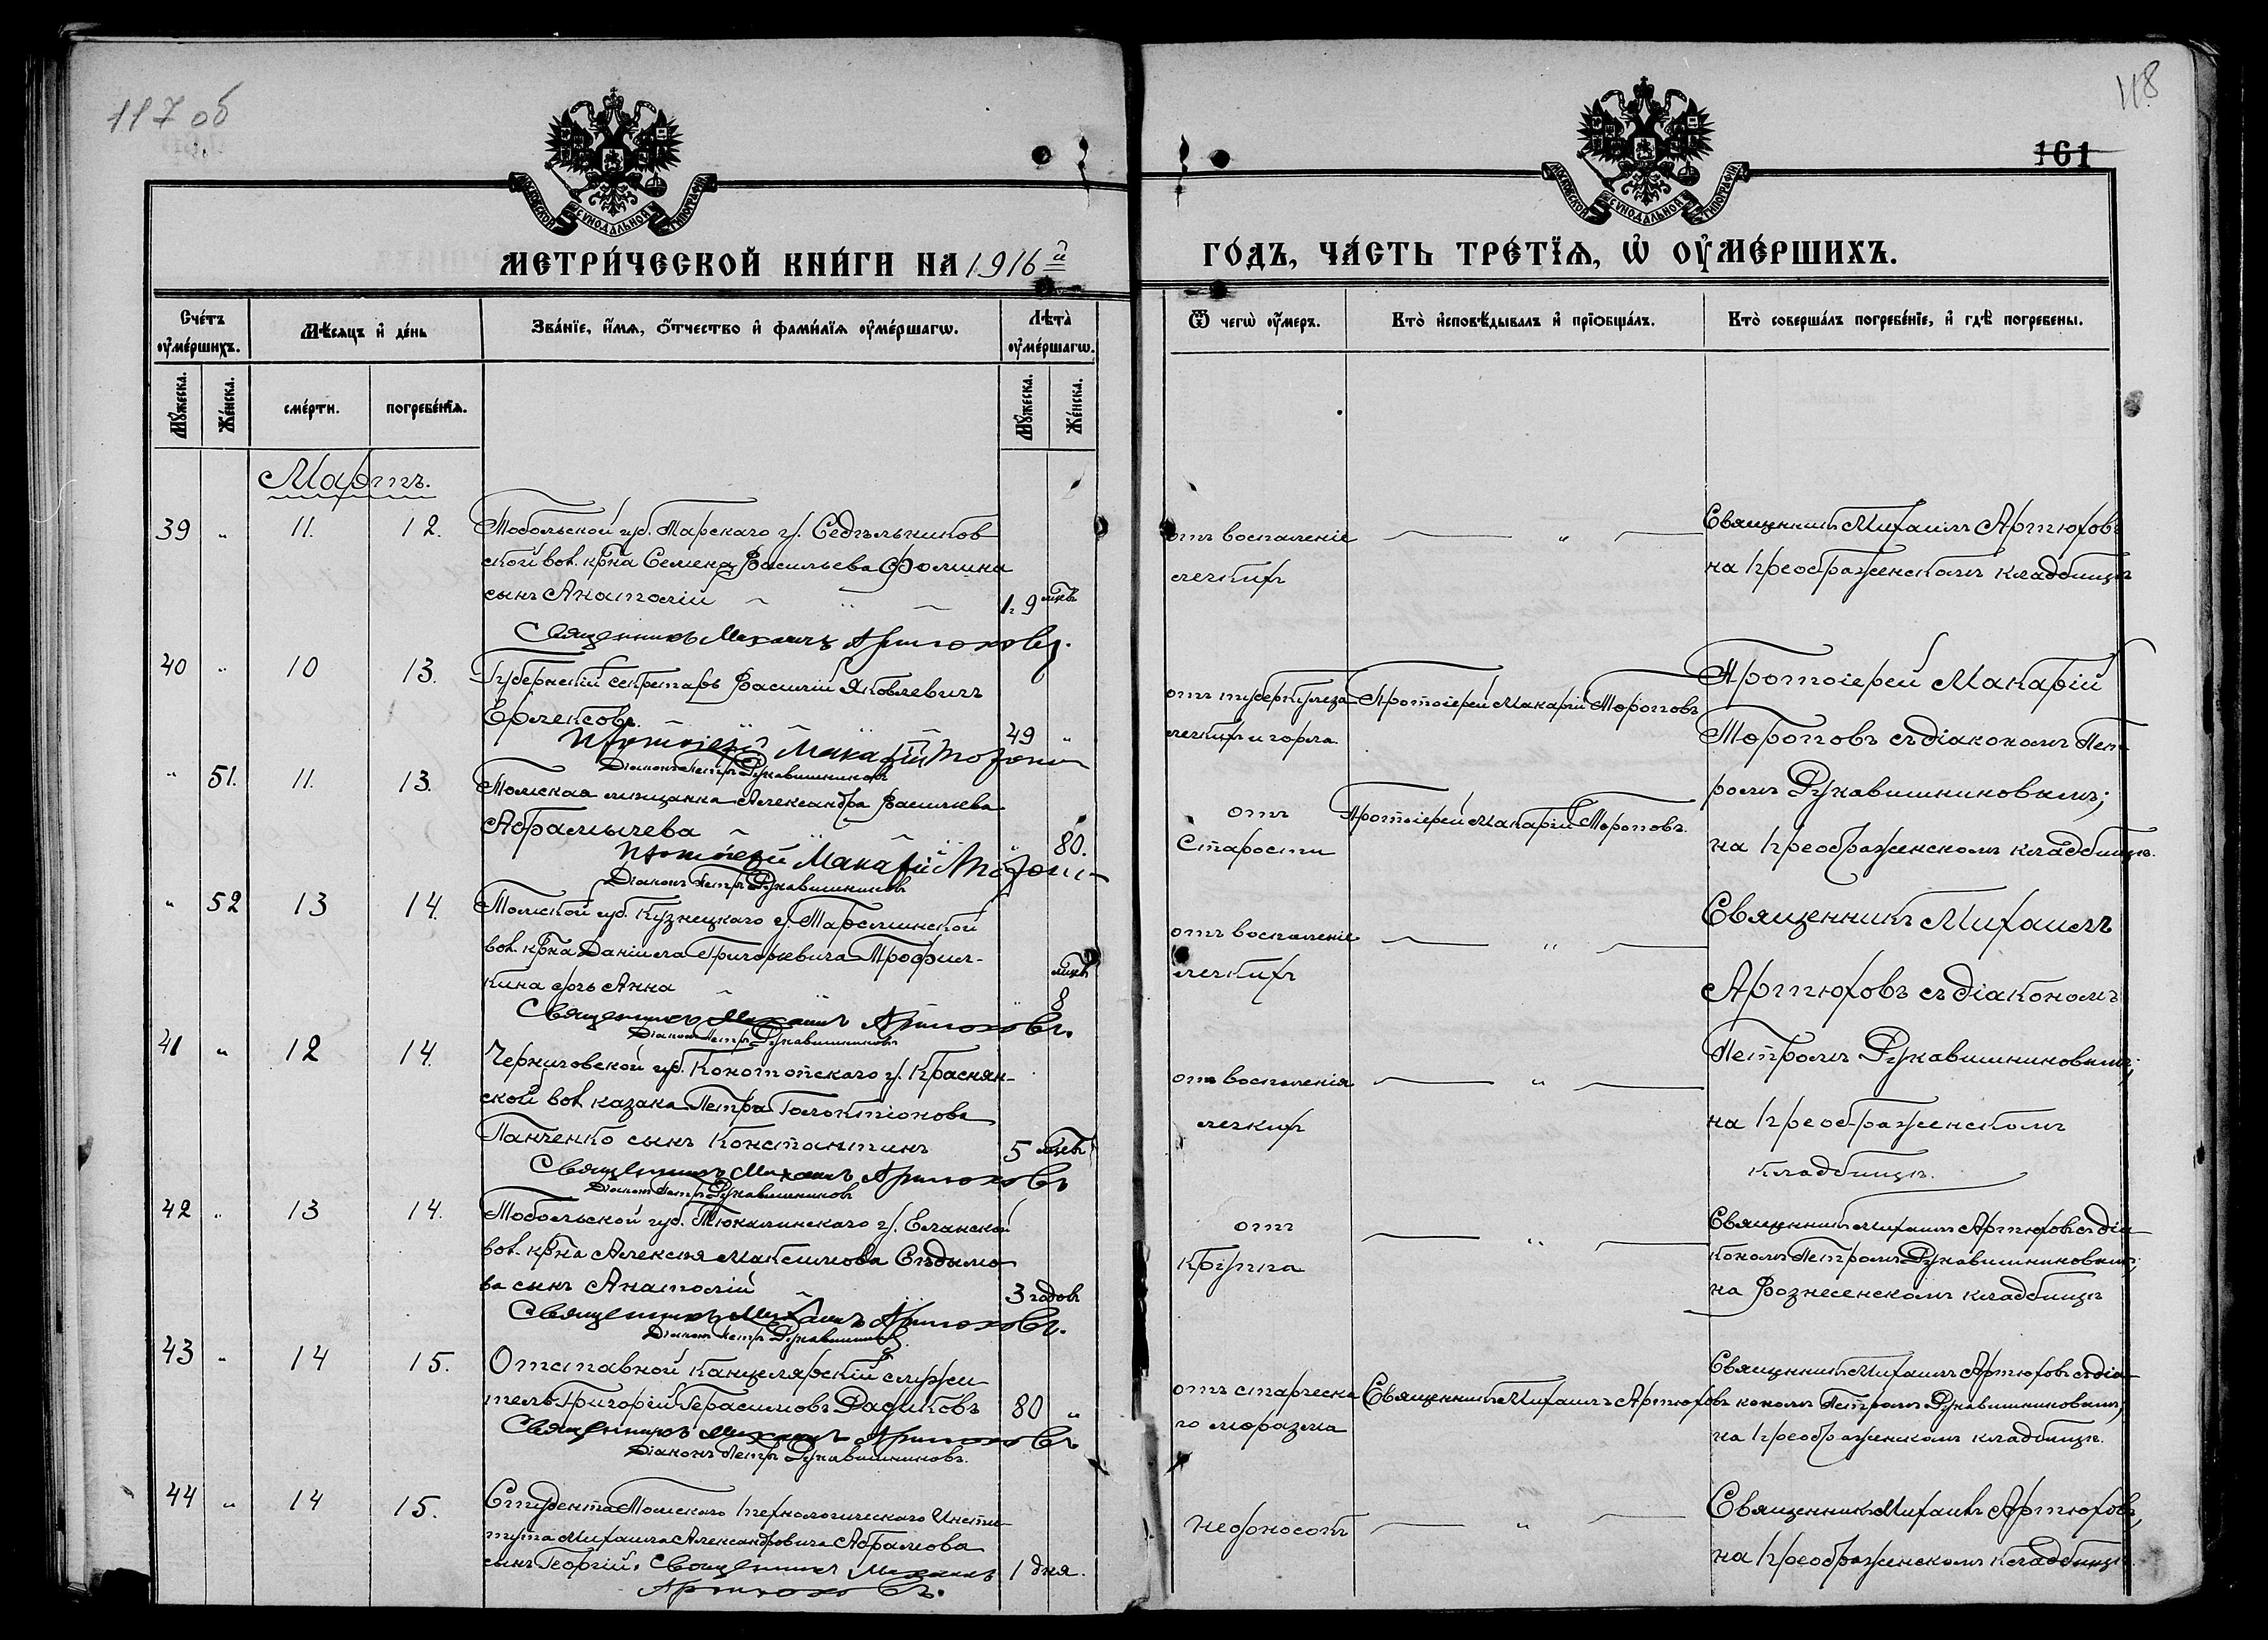 117 об
118
161
МОСКОВСКОЙ СѴНОДАЛЬНОЙ ТИПОГРАФІИ
МОСКОВСКОЙ СѴНОДАЛЬНОЙ ТИПОГРАФІИ
МЕТРИ́ЧЕСКОЙ КНИ́ГИ НА 1916й
ГО́ДЪ, ЧА́СТЬ ТРЕ́ТЇѦ, Ѡ҆ ОУ҆МЕ́РШИХЪ.
Сче́тъ оу҆ме́ршихъ.
Мѣ́сяцъ и҆ де́нь
Зва́нїе, и҆́мѧ, ѻ҆́тчество и҆ фами́лїѧ оу҆ме́ршагѡ.
Лѣ̀та оу҆ме́ршагѡ.
Ѿ чегѡ̀ оу҆́меръ.
Кто̀ и҆сповѣ́дывалъ и҆ прїѡбща́лъ.
Кто̀ соверша́лъ погребе́нїе, и҆ гдѣ̀ погребены.
Мꙋ́жеска.
Же́нска.
сме́рти.
погребе́нїѧ.
Мꙋ́жеска.
Же́нска.
Мартъ.
39 " 11. 12. Тобольской губ. Тарскаго у. Седѣльников
ской вол. кр-на Семена Васильева Фомина
сынъ Анатолій " 1 г. 9 мцев
Священникъ Михаилъ Артюховъ.
отъ воспаленіе
легкихъ
"
Священникъ Михаилъ Артюховъ
на Преображенскомъ кладбищѣ
40 " 10 13. Губернскій секретарь Василій Яковлевичъ
Ерлексовъ. 49 "
Протоіерей Макарій Торопов
Діаконъ Петръ Рукавишниковъ
отъ туберкулеза
легкихъ и горла.
Протоіерей Макарій Торопов
Протоіерей Макарій
Тороповъ съ діакономъ Пет
ромъ Рукавишниковымъ;
на Преображенскомъ кладбищѣ.
" 51. 11. 13. Томская мѣщанка Александра Васильева
Абрамычева " 80.
Протоіерей Макарій Торопов
Діаконъ Петръ Рукавишниковъ
отъ
старости
Протоіерей Макарій Тороповъ.
" 52 13 14. Томской губ. Кузнецкаго у. Тарсминской
вол. кр-на Даніила Григорьевича Трофил-
кина дочь Анна " 8 мцев
Священникъ Михаилъ Артюховъ.
Діаконъ Петръ Рукавишниковъ
отъ воспаленіе
легкихъ
"
Священникъ Михаилъ
Артюховъ съ діакономъ
Петромъ Рукавишниковымъ;
на Преображенскомъ
кладбищѣ.
41 " 12 14. Черниговской губ. Конотопскаго у. Краснян-
ской вол. казака Петра Галактіонова
Панченко сынъ Константинъ 5 мцев
Священникъ Михаилъ Артюховъ
Діаконъ Петръ Рукавишниковъ
отъ воспаленія
легкихъ
"
42 " 13 14. Тобольской губ. Тюкалинскаго у. Еланской
вол. кр-на Алексѣя Максимова Сѣдымо
ва сынъ Анатолій 3 годов
Священникъ Михаилъ Артюховъ.
Діаконъ Петръ Рукавишниковъ.
отъ
крупа
"
Священникъ Михаилъ Артюховъ съ діа
кономъ Петромъ Рукавишниковымъ;
на Вознесенскомъ кладбищѣ
43 " 14 15. Отставной канцелярскій служи
тель Григорій Герасимовъ Радиковъ 80 "
Священникъ Михаилъ Артюховъ
Діаконъ Петръ Рукавишниковъ.
отъ старческа
го маразма
Священникъ Михаилъ Артюховъ
Священникъ Михаилъ Артюховъ съ діа
кономъ Петромъ Рукавишниковымъ;
на Преображенскомъ кладбищѣ.
44 " 14 15. Студента Томскаго Технологическаго Инсти
тута Михаила Александровича Абрамова
сынъ Георгій. Священникъ Михаилъ 1 дня.
Артюховъ.
недоносокъ
"
Священникъ Михаилъ Артюховъ,
на Преображенскомъ кладбищѣ.